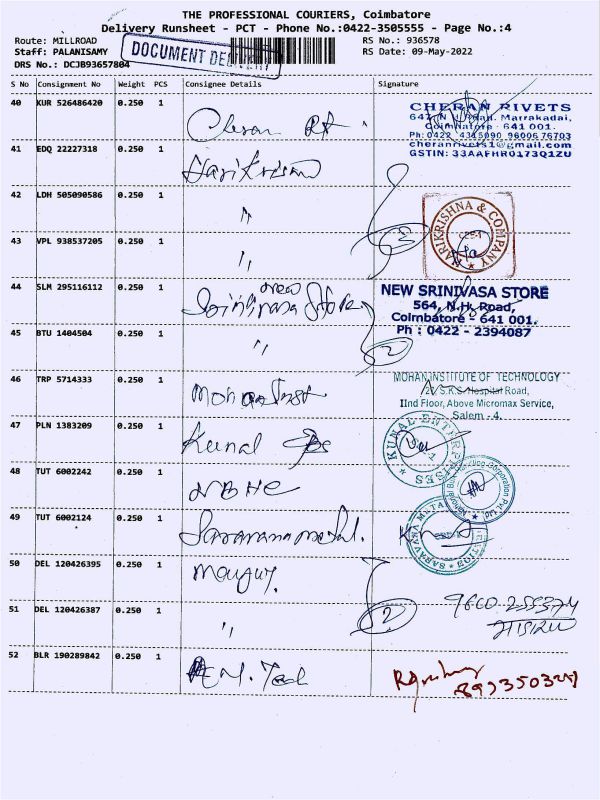 THE PROFESSIONAL COURIERS, Coimbatore
Delivery Runsheet - PCT - Phone No.:0422-3505555 - Page No.:4
Route: MILLROAD
RS No.: 936578
Staff: PALANISAMY
RS Date: 09-May-2022
DRS No.: DCJB93657804
DOCUMENT
S No Consignment No Weight PCS Consignee Details Signature
40 KUR 526486420 0.250 1
CHERAN RIVETS
Marrakadai,
Coimbatore - 641 001.
Ph: 0422 - 4345090 96006 76703
cheranrivets1@gmail.com
GSTIN: 33AAFHR0173Q1ZU
41 EDQ 22227318 0.250 1 Harikrisna
42 LDH 505090586 0.250 1 "
HARIKRISHNA & COMPANY
43 VPL 938537205 0.250 1 "
3
44 SLM 295116112 0.250 1 new Srinivasa Store
NEW SRINIVASA STORE
564, N.H. Road,
Coimbatore - 641 001.
Ph : 0422 - 2394087
45 BTU 1404504 0.250 1 "
2
46 TRP 5714333 0.250 1 Mohan Inst
MOHAN INSTITUTE OF TECHNOLOGY
Road,
IInd Floor, Above Micromax Service,
Salem - 4.
47 PLN 1383209 0.250 1 Kunal
KUNAL ENTERPRISES
48 TUT 6002242 0.250 1 NBHC
49 TUT 6002124 0.250 1 Saravana metal.
50 DEL 120426395 0.250 1
51 DEL 120426387 0.250 1 "
2
52 BLR 190289842 0.250 1